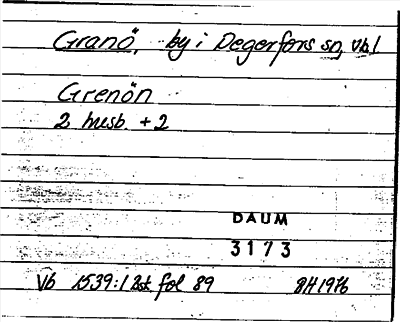 Granö, by i Degerfors sn, Vb l
Grenön
2 husb. + 2
DAUM
3173
Vb 1539:1 fol 89 BH 1976